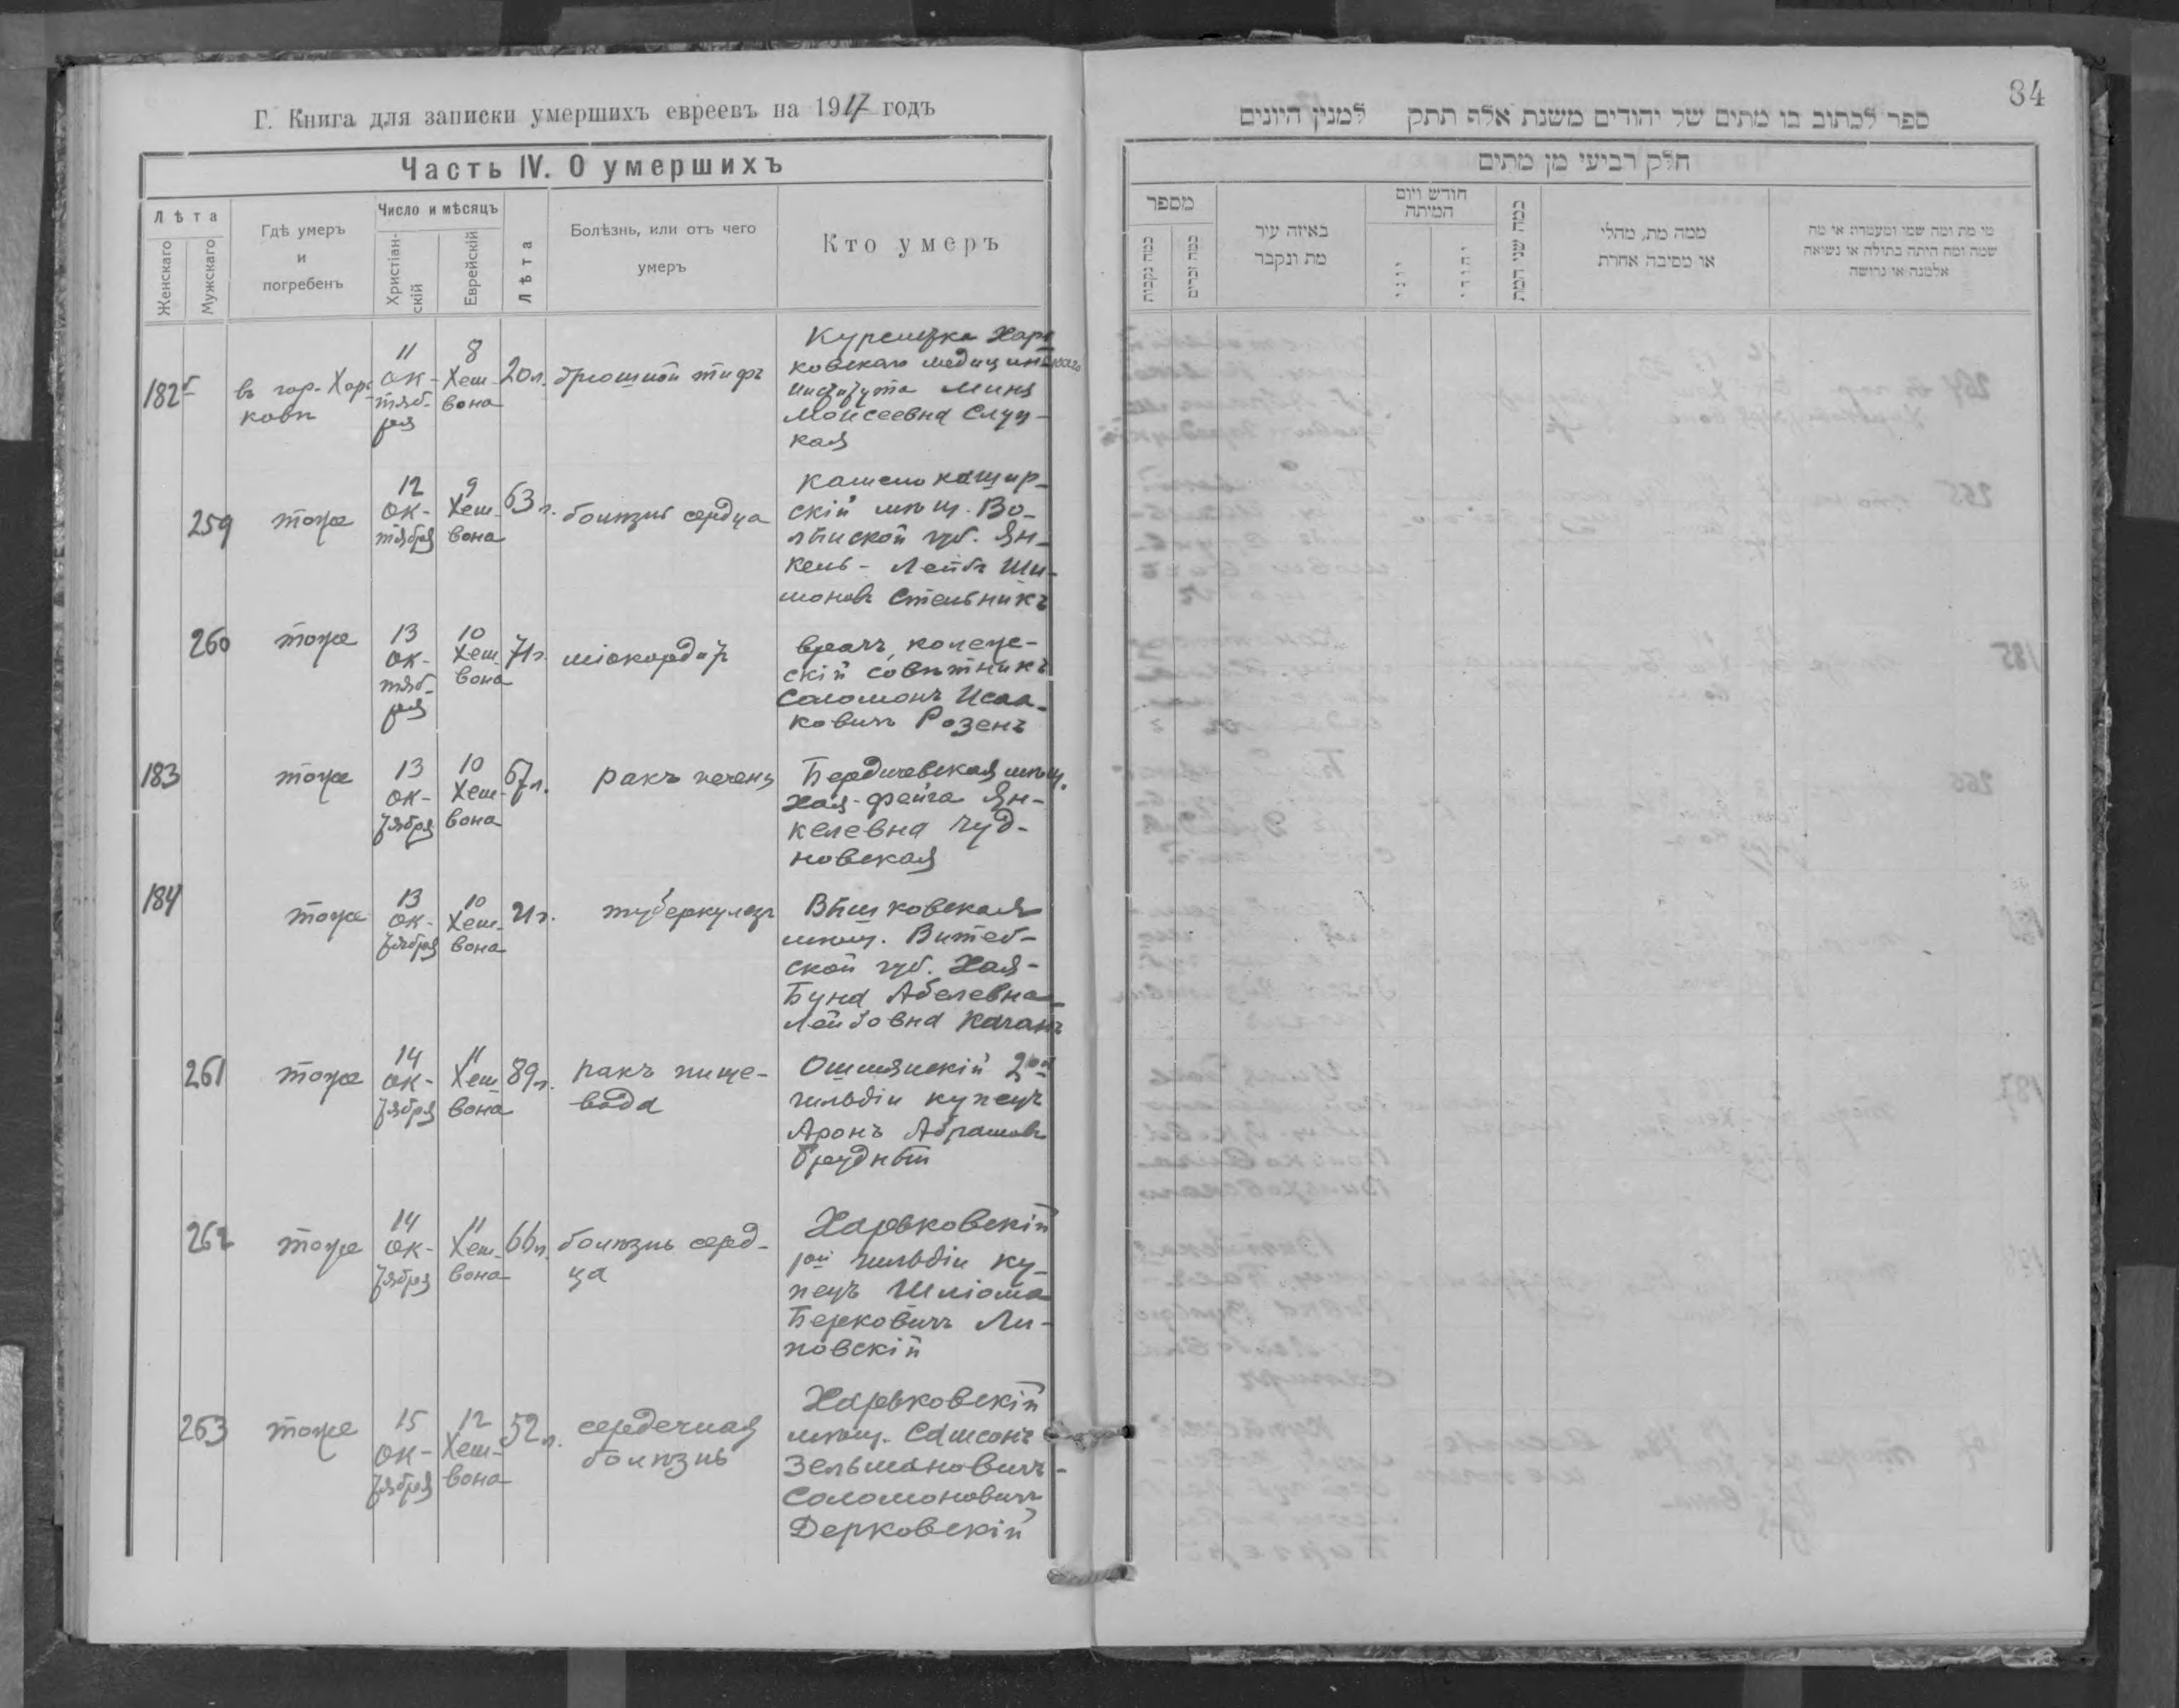 Г. Книга для записки умершихъ евреевъ на 1917 годъ
Часть IV. О умершихъ
Лѣта
Женскаго
Мужскаго
Гдѣ умеръ
и
погребенъ
Число и мѣсяцъ
Христіан-
скій
Еврейскій
Лѣта
Болѣзнь, или отъ чего
умеръ
Кто умеръ
182
въ гор. Харь
ковѣ
11
ок-
тяб-
ря
8
Хеш-
вона
20 л.
брюшной тифъ
Курсистка Харь
ковскаго медицинскаго
Института
Моисеевна Слуц-
кая
259
тоже
12
ок-
тября
9
Хеш-
вона
63 л.
болѣзнь сердца
Камено кашир-
скій мѣщ. Во-
лынской губ. Ян-
кель - Лейбъ Ши-
моновъ Стельникъ
260
тоже
13
ок-
тяб-
ря
10
Хеш-
вона
71 г.
міокардитъ
врачъ,
скій совѣтникъ
Соломонъ Исаа-
ковичъ Розенъ
183
тоже
13
ок-
тября
10
Хеш-
вона
67 л.
ракъ печени
Бердичевская мѣщ.
Хая-Фейга Ян-
келевна Чуд-
новская
184
тоже
13
ок-
тября
10
Хеш-
вона
21 г.
туберкулезъ
Вышковская
мѣщ. Витеб-
ской губ. Хая-
Буна Абелевна-
Лейбовна Каганъ
261
тоже
14
ок-
тября
11
Хеш-
вона
89 л.
ракъ пище-
вода
Ошмянскій 2ой
гильдіи купецъ
Аронъ Абрамовъ
Брудный
262
тоже
14
ок-
тября
11
Хеш-
вона
66 л.
болѣзнь серд-
ца
Харьковскій
1ой гильдіи ку-
пецъ Шліома
Берковичъ Ли-
повскій
263
тоже
15
ок-
тября
12
Хеш-
вона
52 л.
сердечная
болѣзнь
Харьковскій
мѣщ. Самсонъ
Зельмановичъ-
Соломоновичъ
Дерковскій
84
ספר לכתוב בו מתים של יהודים משנת אלף תתק למנין היונים
חלק רביעי מן מתים
מספר
כמה נקבות
כמה זכרים
באיזה עיר
מת ונקבר
חודש ויום
המיתה
יוני
יהודי
כמה שני המת
ממה מת, מחלי
או מסיבה אחרת
מי מת ומה שמו ומעמדו או מה
שמה ומה היתה בתולה או נשואה
אלמנה או גרושה